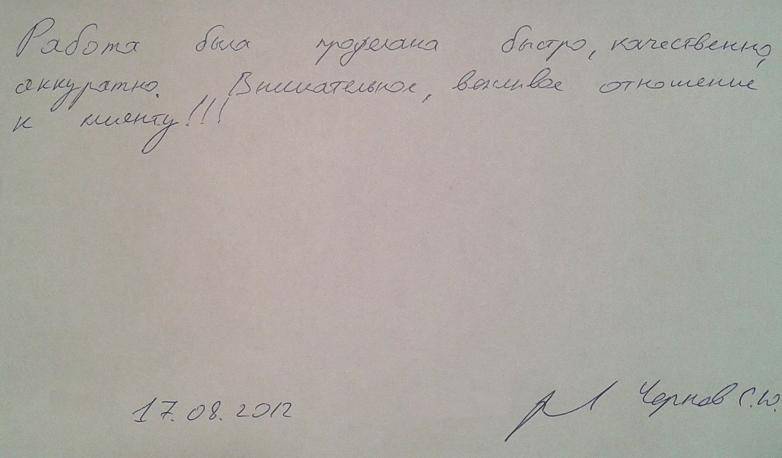 Работа была проделана быстро, качественно,
аккуратно. Внимательное, вежливое отношение
к клиенту!!!
17.08.2012 Чернов С.Ю.